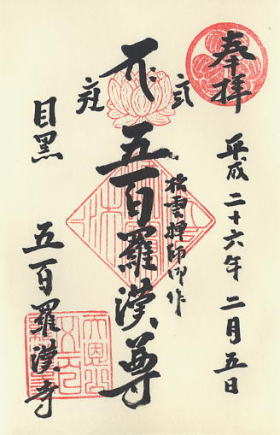 奉拝
平成二十六年二月五日
松雲禅師御作
五百羅漢尊
目黒
五百羅漢寺